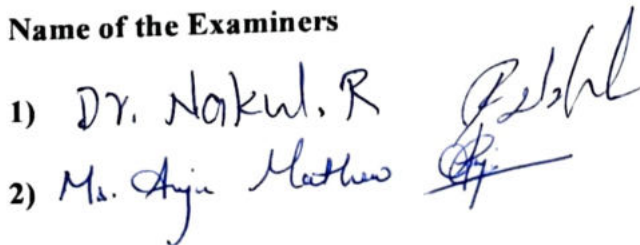 Name of the Examiners
1) Dr. Nakul. R
2) Ms. Anju Mathew